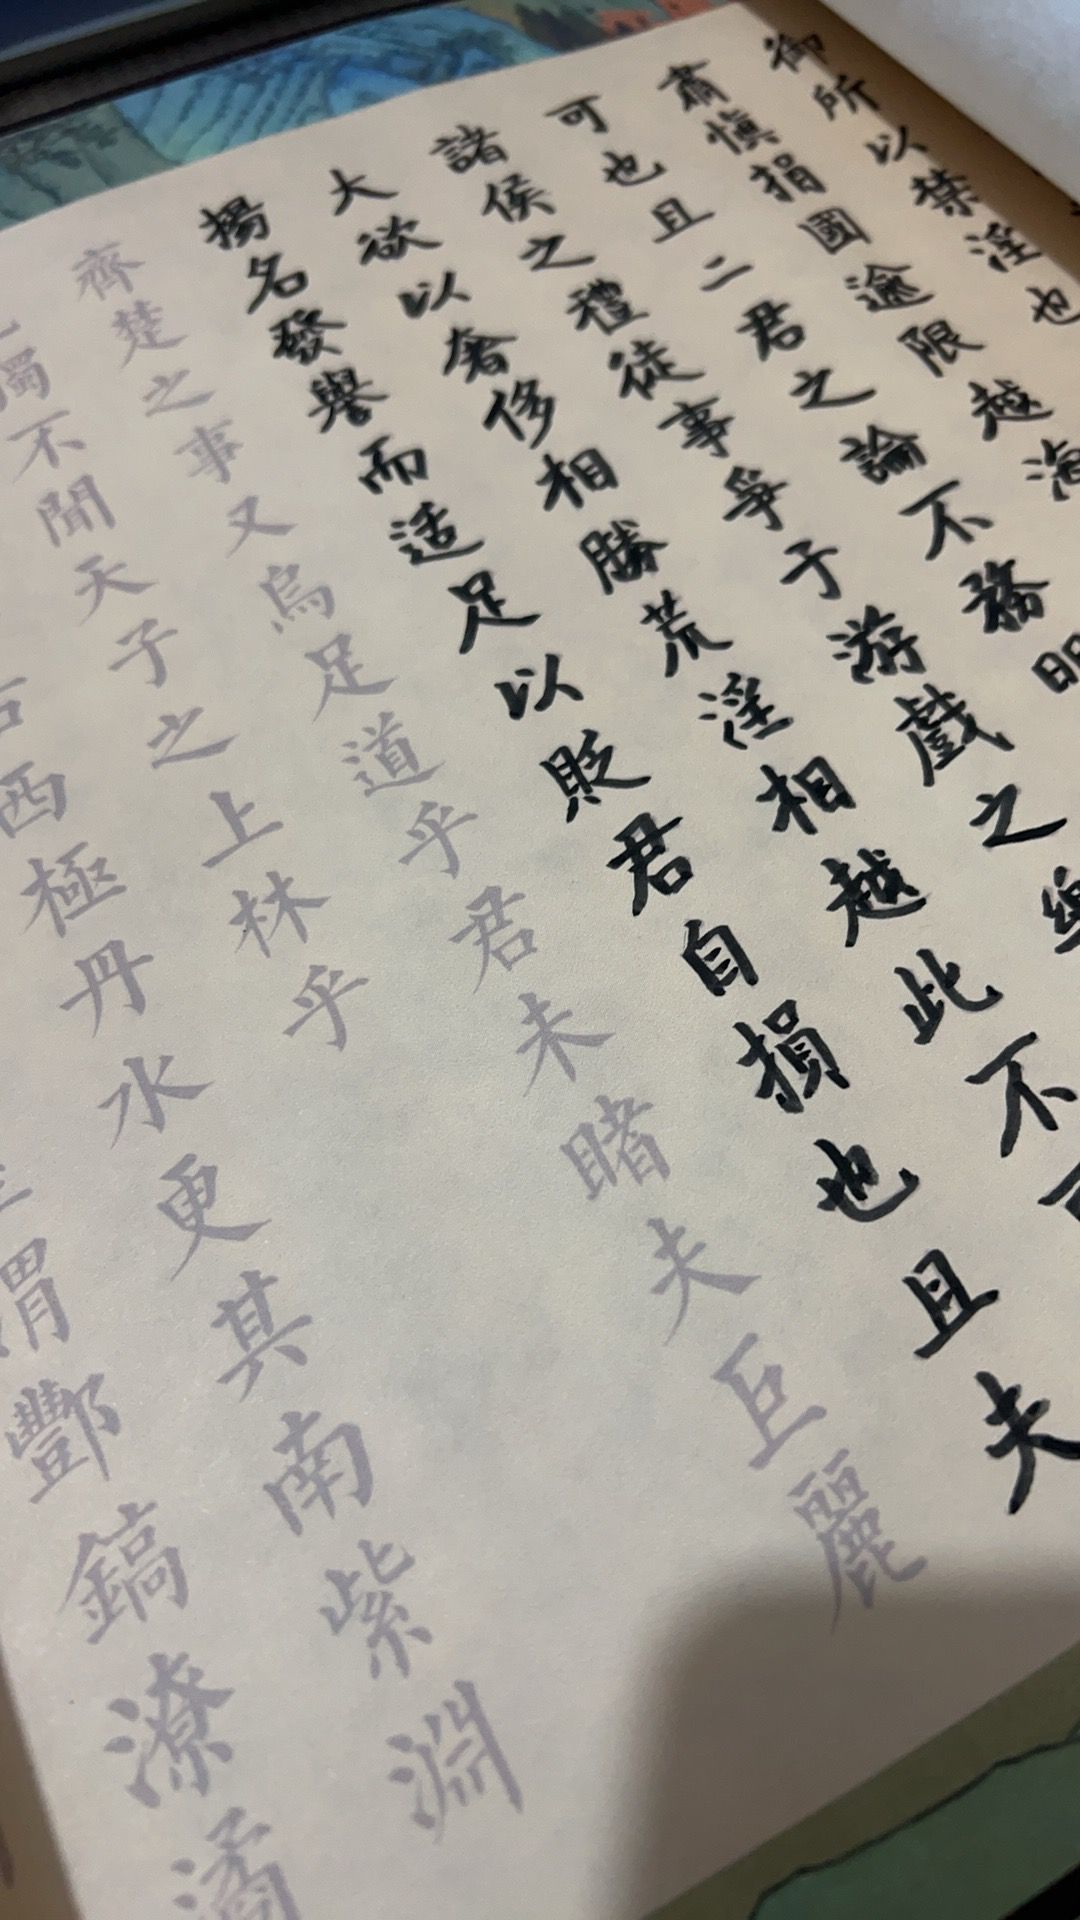 御所以禁淫也
肅慎捐國逾限越海
可也且二君之論不務明
諸侯之禮徒事爭于游戲之樂
大欲以奢侈相勝荒淫相越此不可
揚名發譽而适足以貶君自損也且夫
齊楚之事又烏足道乎君未睹夫巨麗
獨不聞天子之上林乎
右西極丹水更其南紫淵
渭酆鎬潦潏